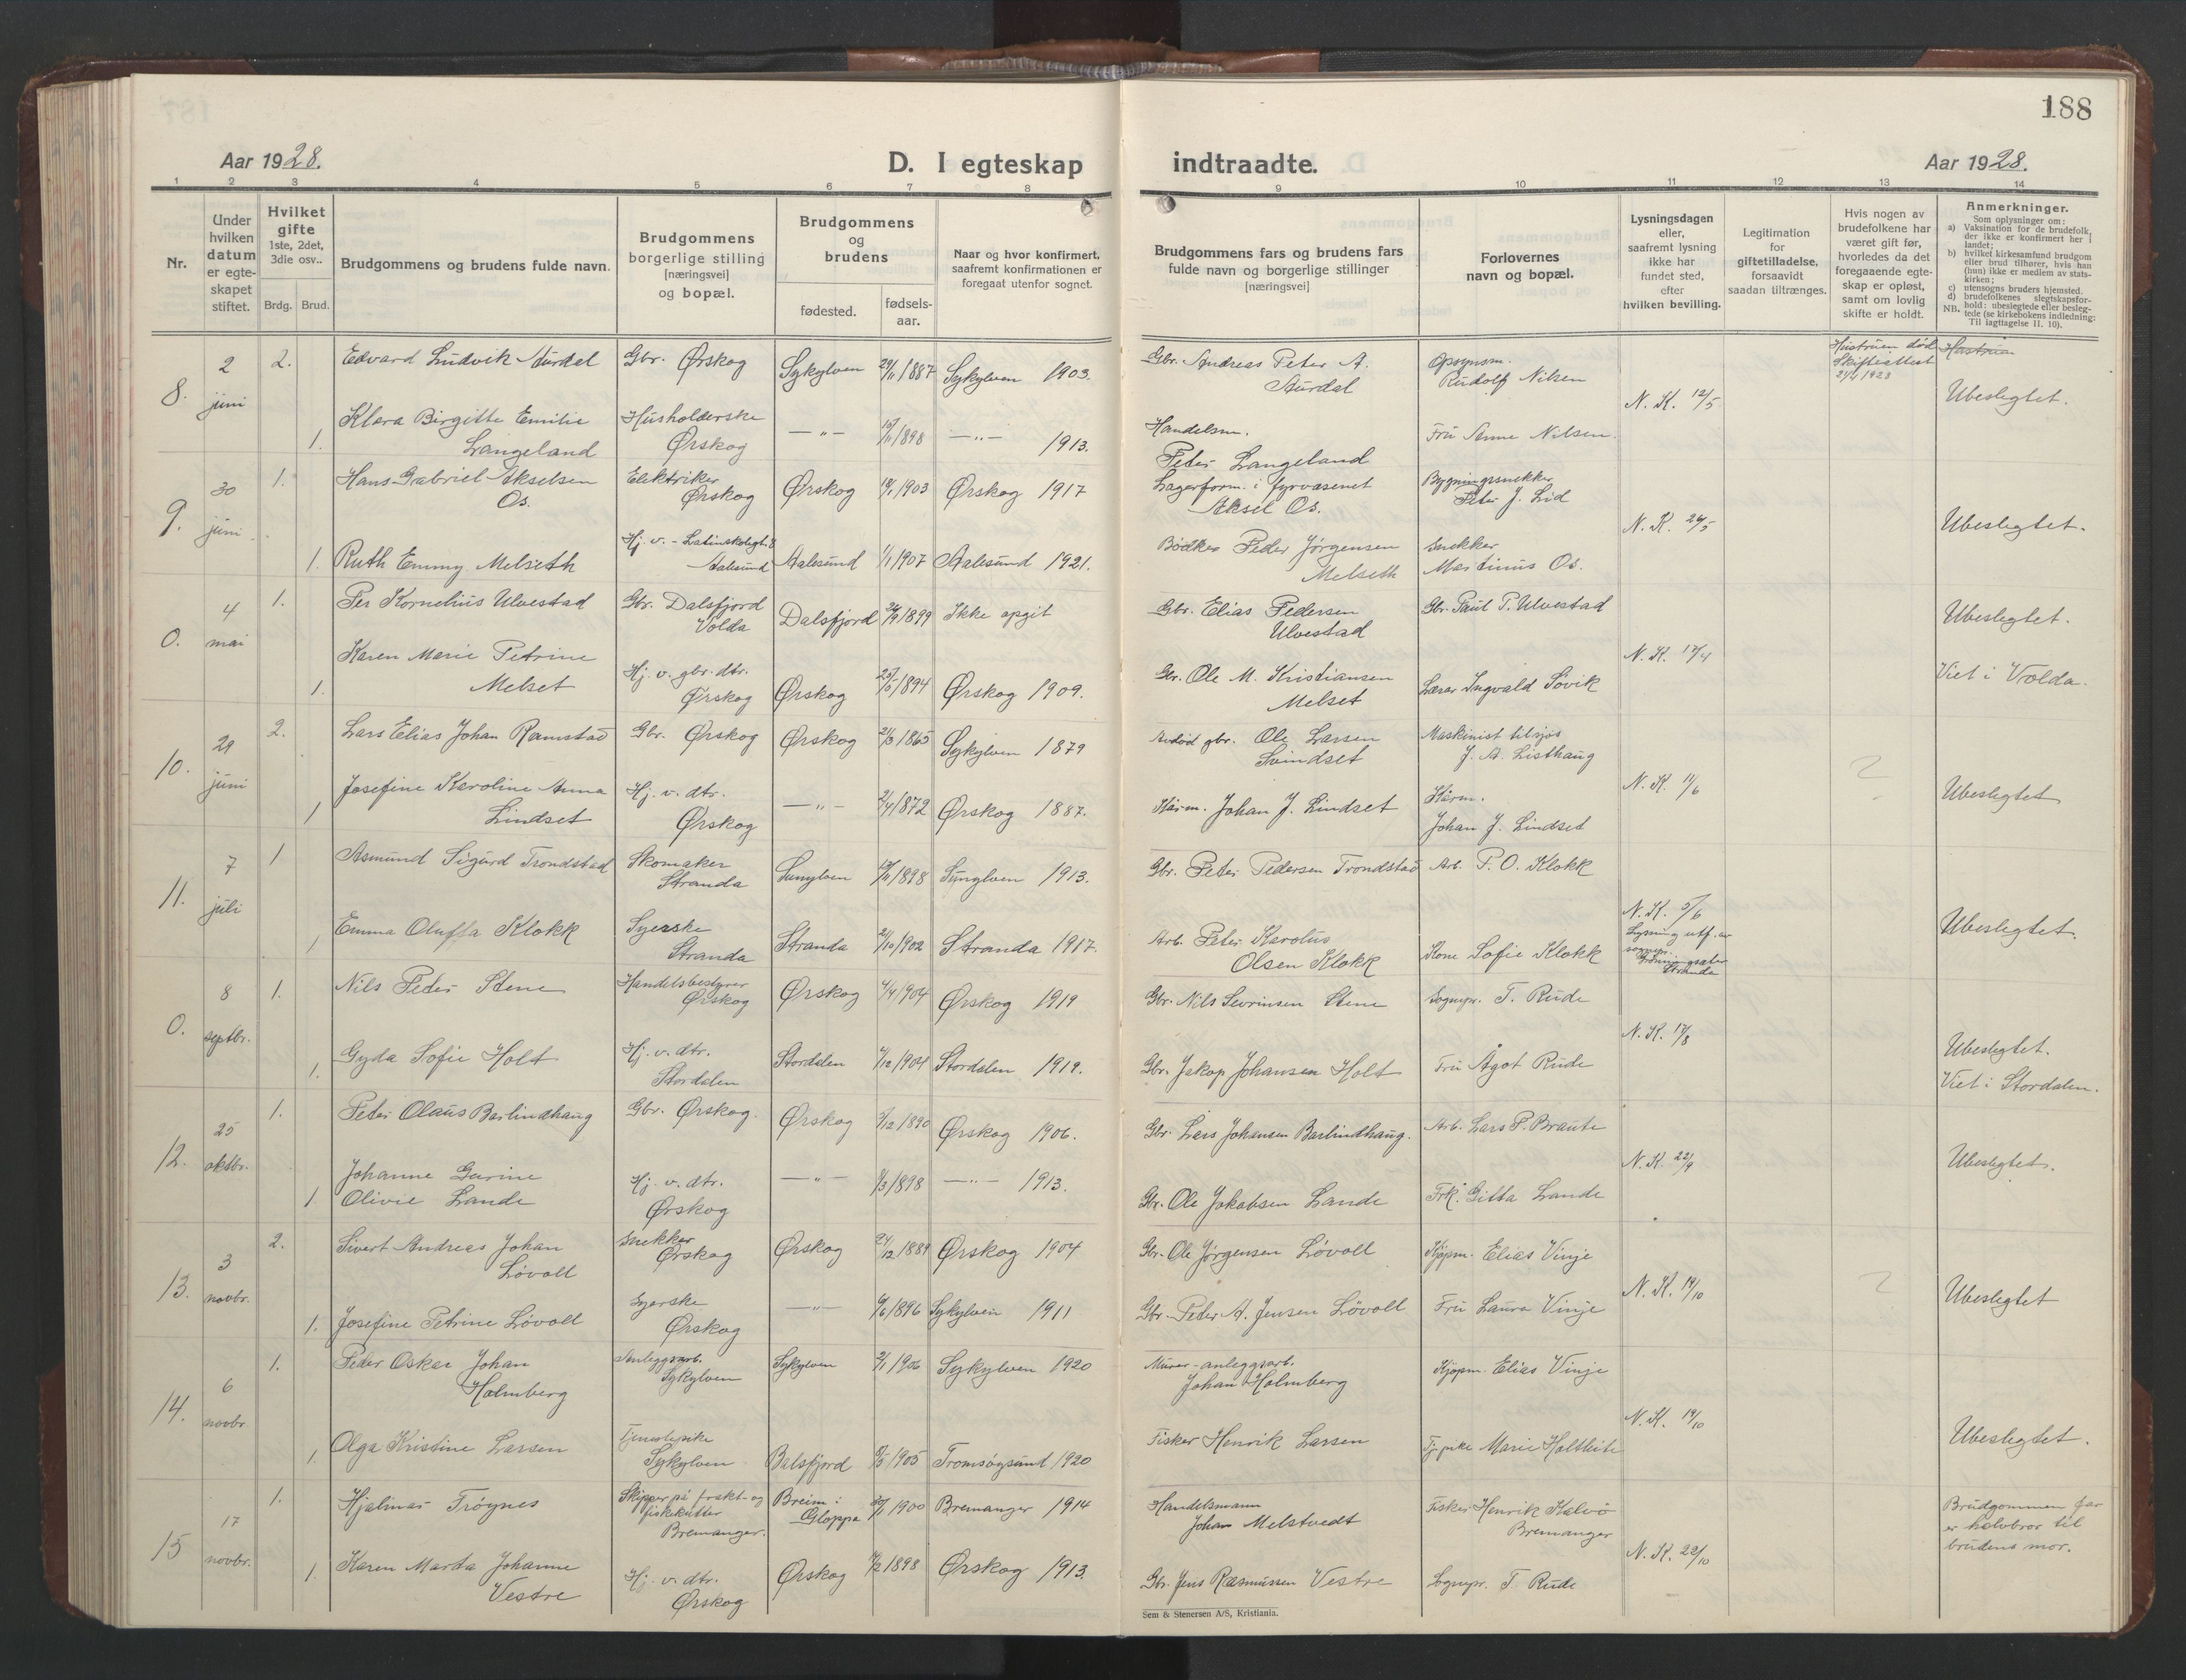 188
Aar 1928.
D. I egteskap indtraadte.
Aar 1928.
1 2 3 4 5 6 7 8 9 10 11 12 13 14
Nr.
Under hvilken datum er egte-skapet stiftet.
Hvilket gifte 1ste, 2det, 3die osv..
Brdg. Brud.
Brudgommens og brudens fulde navn.
Brudgommens borgerlige stilling [næringsvei] og bopæl.
Brudgommens og brudens
fødested.
fødsels-aar.
Naar og hvor konfirmert, saafremt konfirmationen er foregaat utenfor sognet.
Brudgommens fars og brudens fars fulde navn og borgerlige stillinger [næringsvei]
Forlovernes navn og bopæl.
Lysningsdagen eller, saafremt lysning ikke har fundet sted, efter hvilken bevilling.
Legitimation for giftetilladelse, forsaavidt saadan tiltrænges.
Hvis nogen av brudefolkene har været gift før, hvorledes da det foregaaende egte-skap er opløst, samt om lovlig skifte er holdt.
Anmerkninger.
Som oplysninger om:
a) Vaksination for de brudefolk, der ikke er konfirmert her i landet;
b) hvilket kirkesamfund brudgom eller brud tilhører, hvis han (hun) ikke er medlem av stats-kirken;
c) utensogns bruders hjemsted.
d) brudefolkenes slegtskapsfor-hold: ubeslegtede eller besleg-tede (se kirkebokens indledning:
NB. Til iagttagelse II. 10).
8. 2 juni 2. Edvard Ludvik Aurdal Gbr. Ørskog Sykylven 29/11 1887 Sykylven 1903.
Gbr. Andreas Peter A. Aurdal Opsynsm. Rudolf Nilsen N. K. 12/5 Hustruen død Skifteattest 21/4 1928 Hustruen Ubeslegtet.
1. Klara Birgitte Emilie Langeland Husholderske Ørskog — " — 1898 — " — 1913.
Handelsm. Peder Langeland Fru Anne Nilsen.
9. 30 juni 1. Hans Gabriel Akselsen Os. Elektriker Ørskog Ørskog 1903 Ørskog 1917
Lagerform. i fyrvæsenet Aksel Os. Bygningssnekker Peter J. Lid N. K. 26/5 Ubeslegtet.
1. Ruth Emmy Melseth Hj. v. - Aalesund Aalesund 1/1 1907 Aalesund 1921.
Bødker Peder Jørgensen Melseth Snekker Martinus Os.
0. 4 mai 1. Per Kornelius Ulvestad Gbr. Dalsfjord Volda Dalsfjord 1899 Ikke opgit
Gbr. Elias Pedersen Ulvestad Gbr. Paul P. Ulvestad N. K. 17/4 Ubeslegtet.
1. Karen Marie Petrine Melset Hj. v. gbr. dtr. Ørskog Ørskog 1894 Ørskog 1909.
Gbr. Ole M. Kristiansen Melset Lærer Ingvald Søvik Viet i Volda.
10. 29 juni 2. Lars Elias Johan Ramstad Gbr. Ørskog Ørskog 21/3 1865 Sykylven 1879
Avdød gbr. Ole Larsen Svindset Maskinist tilsjøs J. A. Listhaug N. K. 11/6 ? Ubeslegtet
1 Josefine Karoline Anna Lindset Hj. v. dtr. Ørskog — " — 2/4 1872 Ørskog 1887.
Kårm. Johan J. Lindset Kårm. Johan J. Lindset
11. 7 juli 1 Asmund Sigurd Trondstad Skomaker Stranda Sunylven 1898 Sunylven 1913.
Gbr. Peter Pedersen Trondstad Arb. P. O. Klokk N. K. 5/6 Lysning utf. av Stranda Ubeslegtet.
1 Emma Oluffa Klokk Syerske Stranda Stranda 2/10 1902 Stranda 1917.
Arb. Peter Karolus Olsen Klokk Kone Sofie Klokk
0. 8 septbr. 1. Nils Peder Stene Handelsbestyrer Ørskog Ørskog 4/4 1904 Ørskog 1919
Gbr. Nils Sevrinsen Stene Sognepr. T. Rude N. K. 17/8 Ubeslegtet.
1. Gyda Sofie Holt Hj. v. dtr. Stordalen Stordalen 7/12 1904 Stordalen 1919.
Gbr. Jakop Johansen Holt Fru Ågot Rude Viet i Stordalen.
12. 25 oktbr. 1. Peter Olaus Barlindhaug Gbr. Ørskog. Ørskog 3/12 1890 Ørskog 1906.
Gbr. Lars Johansen Barlindhaug. Arb. Lars P. Braute N. K. 22/9 Ubeslegtet.
1. Johanne Gurine Olivie Lande Hj. v. dtr. Ørskog — " — 1/3 1898 — " — 1913.
Gbr. Ole Jakobsen Lande Frk. Gitta Lande
13. 3 novbr. 2. Sivert Andreas Johan Løvoll Snekker Ørskog Ørskog 24/12 1889 Ørskog 1904
Gbr. Ole Jørgensen Løvoll Kjøpm. Elias Vinje N. K. 14/10 ? Ubeslegtet
1. Josefine Petrine Løvoll Syerske Ørskog — " — 1896 Sykylven 1911
Gbr. Peter A. Jensen Løvoll Fru Laura Vinje
14. 6 novbr. 1. Peder Oskar Johan Holmberg Anleggsarb. Sykylven Sykylven 2/1 1906 Sykylven 1920
Murer-anleggsarb. Johan Holmberg Kjøpm. Elias Vinje N. K. 19/10 Ubeslegtet.
1. Olga Kristine Larsen Tjenestepike Sykylven Balsfjord 1905 Tromsøysund 1920
Fisker Henrik Larsen Tj. pike Marie
15 17 novbr. 1. Hjalmar Trøynes Skipper på frakt- og fiskekutter Bremanger. Breim i Gloppa 1900 Bremanger 1914
Handelsmann Johan Melstvedt Fisker Henrik Kalvø Bremanger N. K. 22/10 Brudgommens far er halvbror til brudens mor.
1. Karen Marta Johanne Vestre Hj. v. dtr. Ørskog Ørskog 1898 Ørskog 1913.
Gbr. Jens Rasmussen Vestre Sognepr. T. Rude
Sem & Stenersen A/S, Kristiania.